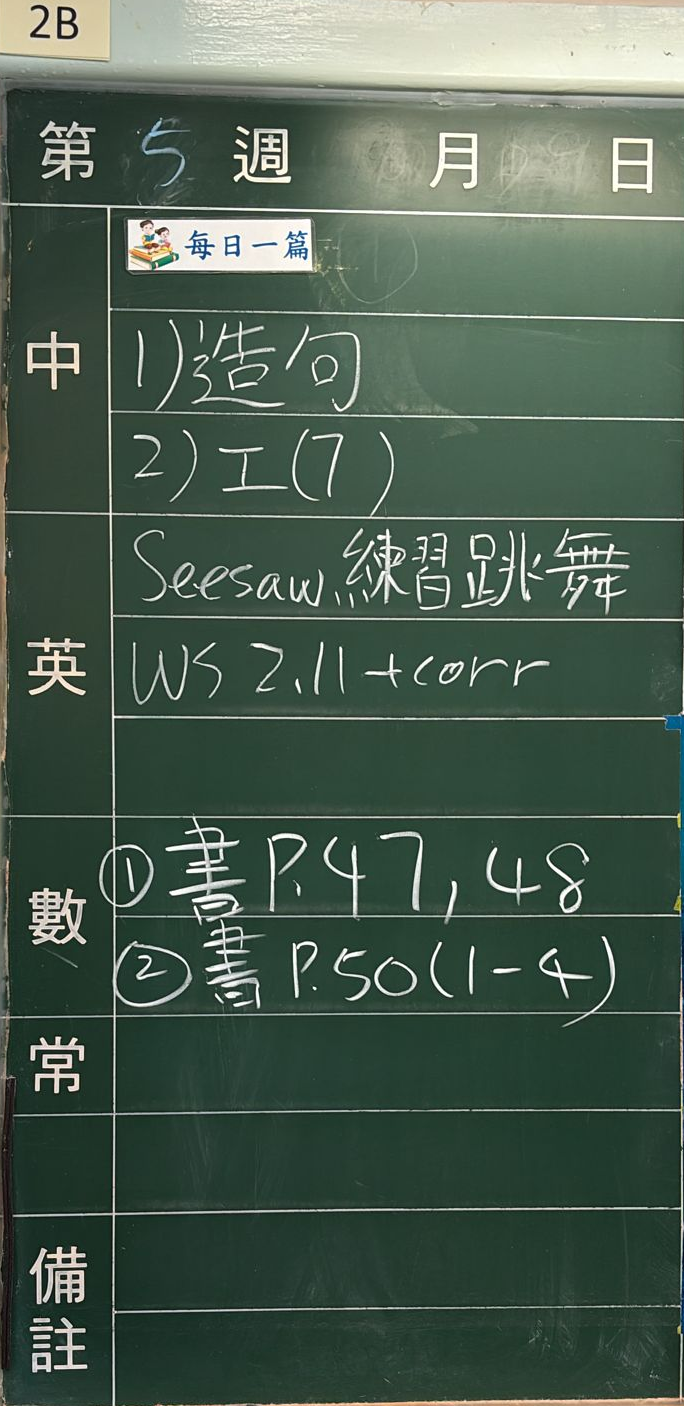 2B
第 5 週 月 日
每日一篇
中
1)造句
2)工(7)
英
Seesaw 練習跳舞
WS 2.11 +corr
數
① 書 P.47, 48
② 書 P.50(1-4)
常
備註